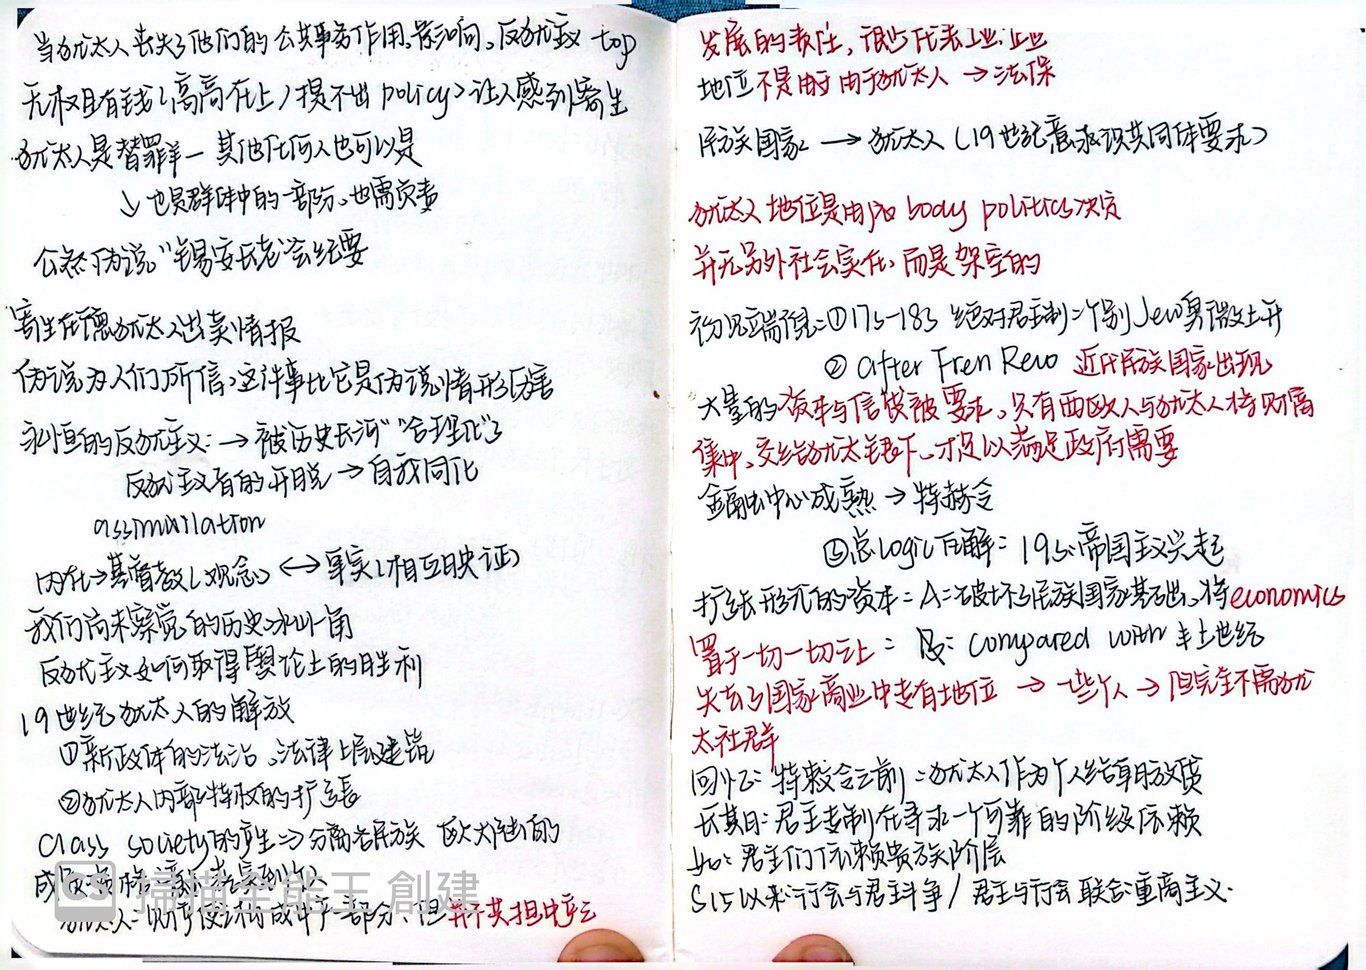 当犹太人丧失了他们的公共事务作用、影响，反犹主义 top
无权且有钱（高高在上/提不出 policy）让人感到寄生
犹太人是替罪羊—其他任何人也可以是
↘ 也是群体中的一部分，也需负责
公然伪说“锡安长老”会纪要
寄生在德犹太人出卖情报
伪说为人们所信，这件事比它是伪说情形厉害
永恒的反犹主义：→ 被历史长河“合理化”了
反犹主义者的开脱 → 自我同化
assimilation
内化→基督教（观念）↔ 事实（相互映证）
我们尚未察觉的历史冰山一角
反犹主义如何取得舆论上的胜利
19世纪犹太人的解放
①新政体的法治、法律上层建筑
②犹太人内部特权的扩张
Class society的产生⇒分离各民族 欧大陆的
成
犹太人：财产使之构成中产一部分，但并不共担中产之
发展的责任，很少代表工业企业
地位不是由于犹太人 → 法保
民族国家 → 犹太人（19世纪意识共同体要求）
犹太人地位是由 body politics决定
并无另外社会实在，而是架空的
初见端倪：①17s-18s 绝对君主制：个别Jew
② after Fren Revo 近代民族国家出现
大量的资本与信贷被要求，只有西欧人与犹太人将财富
集中，交给犹太 才足以满足政府需要
金融中心成熟 → 特赦令
③总Logic瓦解：19s：帝国主义兴起
扩张形式的资本：A：破坏了民族国家基础，将economics
置于一切一切之上： B：compared with 半世纪
失去了国家商业中专有地位 → 一些个人 → 但完全不需犹
太社群
回忆：特赦令之前：犹太人作为个人给君放贷
长其日：君主专制在寻求一个可靠的阶级依赖
如：君主们信赖贵族阶层
S15以来：行会与君主斗争 / 君主与行会联合：重商主义
掃描全能王 創建